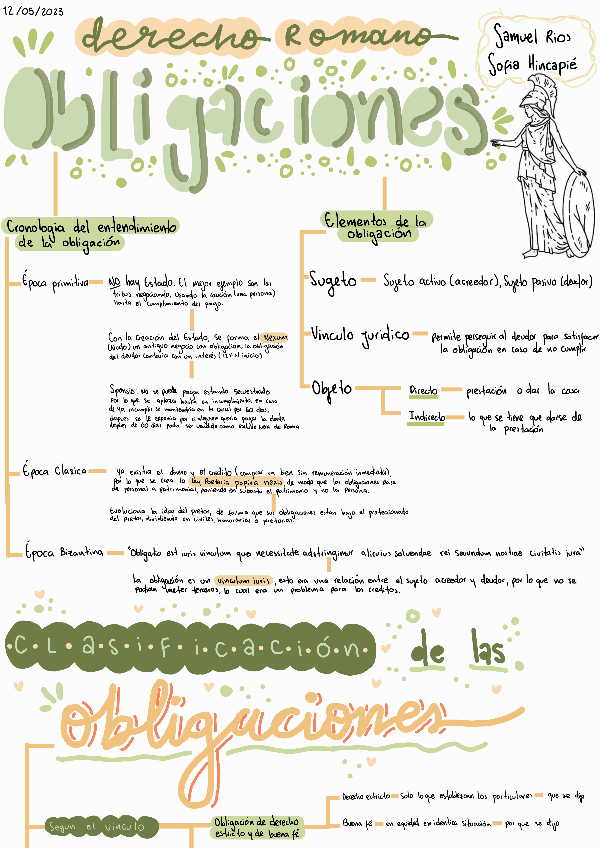 12/05/2023
derecho Romano
Samuel Rios
Sofia Hincapié
Obligaciones
Cronologia del entendimiento
de la obligación
Época primitiva
NO hay Estado. El mejor ejemplo son las
tribus negociando, usando la caución (una persona)
hasta el cumplimiento del pago.
Con la creación del Estado, se forma el Nexum
(Nudo) un antiguo negocio con obligación, la obligación
del deudor contaria con un interés (12% al inicio)
Sponsio: No se puede pagar estando secuestrado
Por lo que se aplaza hasta un incumplimiento, en caso
de ya incumplir se mantendria en la carcel por 60 dias,
después se le esperaria por si alguien queria pagar la deuda
después de 60 dias podia ser vendido como esclavo fuera de Roma
Época Clasica
ya existia el dinero y el credito (comprar un bien sin remuneración inmediata),
por lo que se crea la Ley Poetelia papiria nexis, de modo que las obligaciones pasa
de personal a patrimonial, poniendo en subasta el patrimonio y no la persona.
Evoluciona la idea del pretor, de forma que sus obligaciones estan bajo el protectorado
del pretor, dividiendo en civiles, honorarias o pretorias.
Época Bizantina
"Obligatio est iuris vinculum quo necessitate adstringimur alicuius solvendae rei secundum nostrae civitatis iura"
La obligación es un vinculum iuris, esto era una relación entre el sujeto acreedor y deudor, por lo que no se
podian meter terceros, lo cual era un problema para los creditos.
Elementos de la
obligación
Sugeto
Sujeto activo (acreedor), Sujeto pasivo (deudor)
Vinculo juridico
Permite perseguir al deudor para satisfacer
la obligación en caso de no cumplir
Objeto
Directo
prestación o dar la cosa
Indirecto
lo que se tiene que darse de
la prestación
Clasificación de las
obligaciones
Segun el vinculo
Obligación de derecho
estricto y de buena fé
Derecho estricto
Solo lo que establezcan los particulares
que se dijo
Buena fé
en equidad en identica situación
por que se dijo